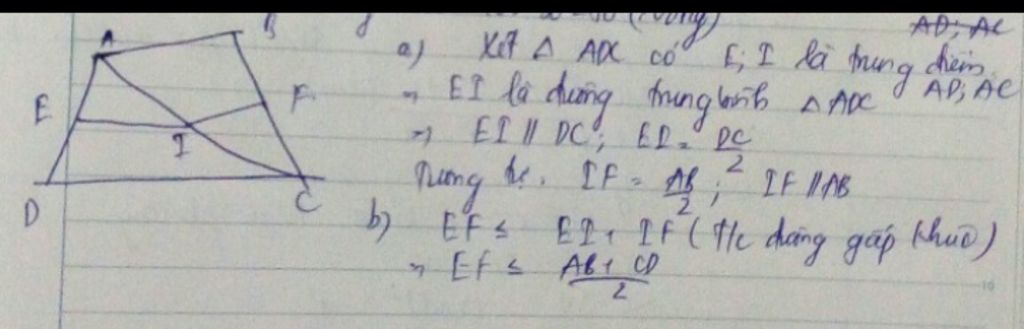 AD; AC
A
B
a) Xét △ ADC có E; I là trung điểm
AD; AC
E
F
I
⇒ EI là đường trung bình △ ADC
⇒ EI // DC; EI = DC/2
Tương tự. IF = AB/2; IF // AB
D
C
b) EF ≤ EI + IF (t/c đường gấp khúc)
⇒ EF ≤ AB + CD / 2